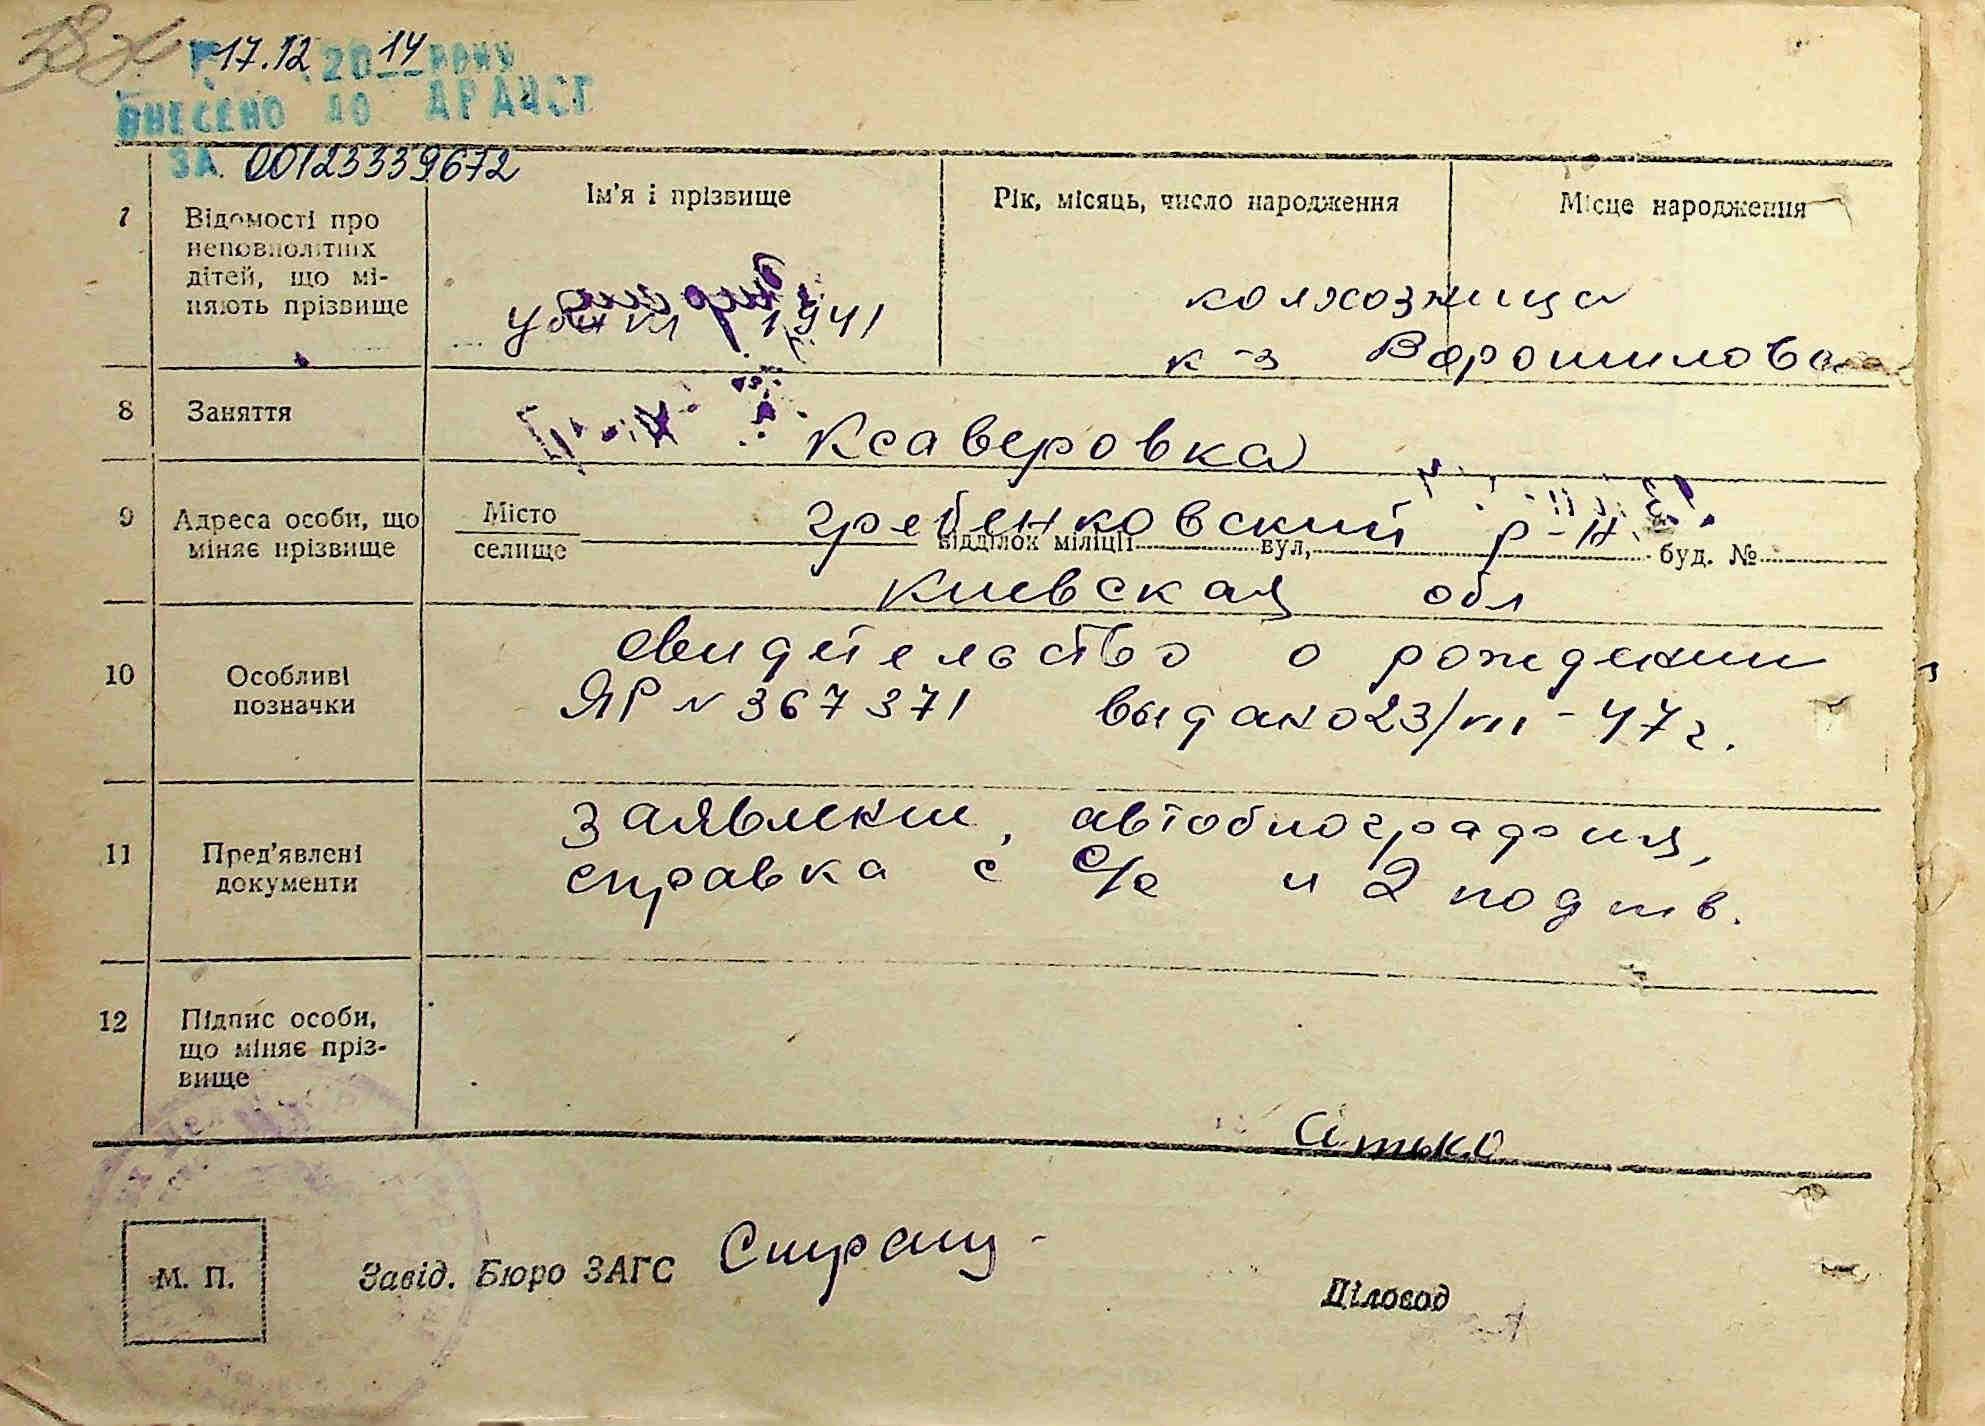 17.12 2014 року
ВНЕСЕНО ДО ДРАЦСГ
ЗА 00123339672
7 Відомості про неповнолітніх дітей, що міняють прізвище
Ім'я і прізвище
Рік, місяць, число народження
Місце народження
1941
колхозница
к-з Ворошилова
8 Заняття
Ксаверовка
9 Адреса особи, що міняє прізвище
Місто
селище
гребенковский р-н
відділок міліції вул, буд. №
киевская обл
10 Особливі позначки
свидетельство о рождении
ЯР N 367371 выдано 23/VII-47 г.
11 Пред'явлені документи
заявление, автобиография,
справка с с/с и 2 подтв.
12 Підпис особи, що міняє прізвище
М. П.
Завід. Бюро ЗАГС
Діловод